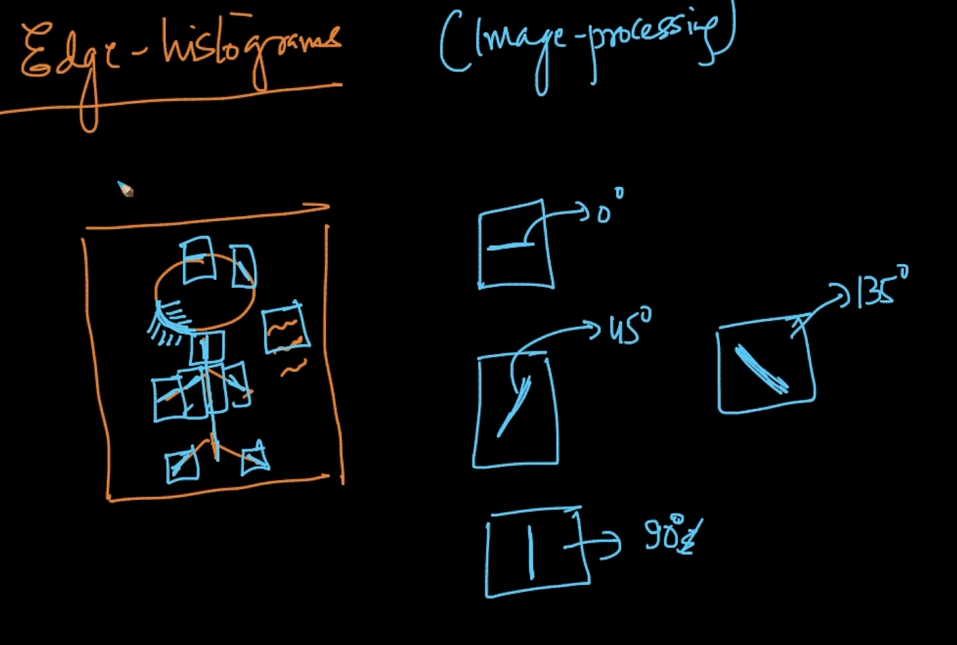 Edge-histograms (Image-processing)
0°
45°
135°
90°